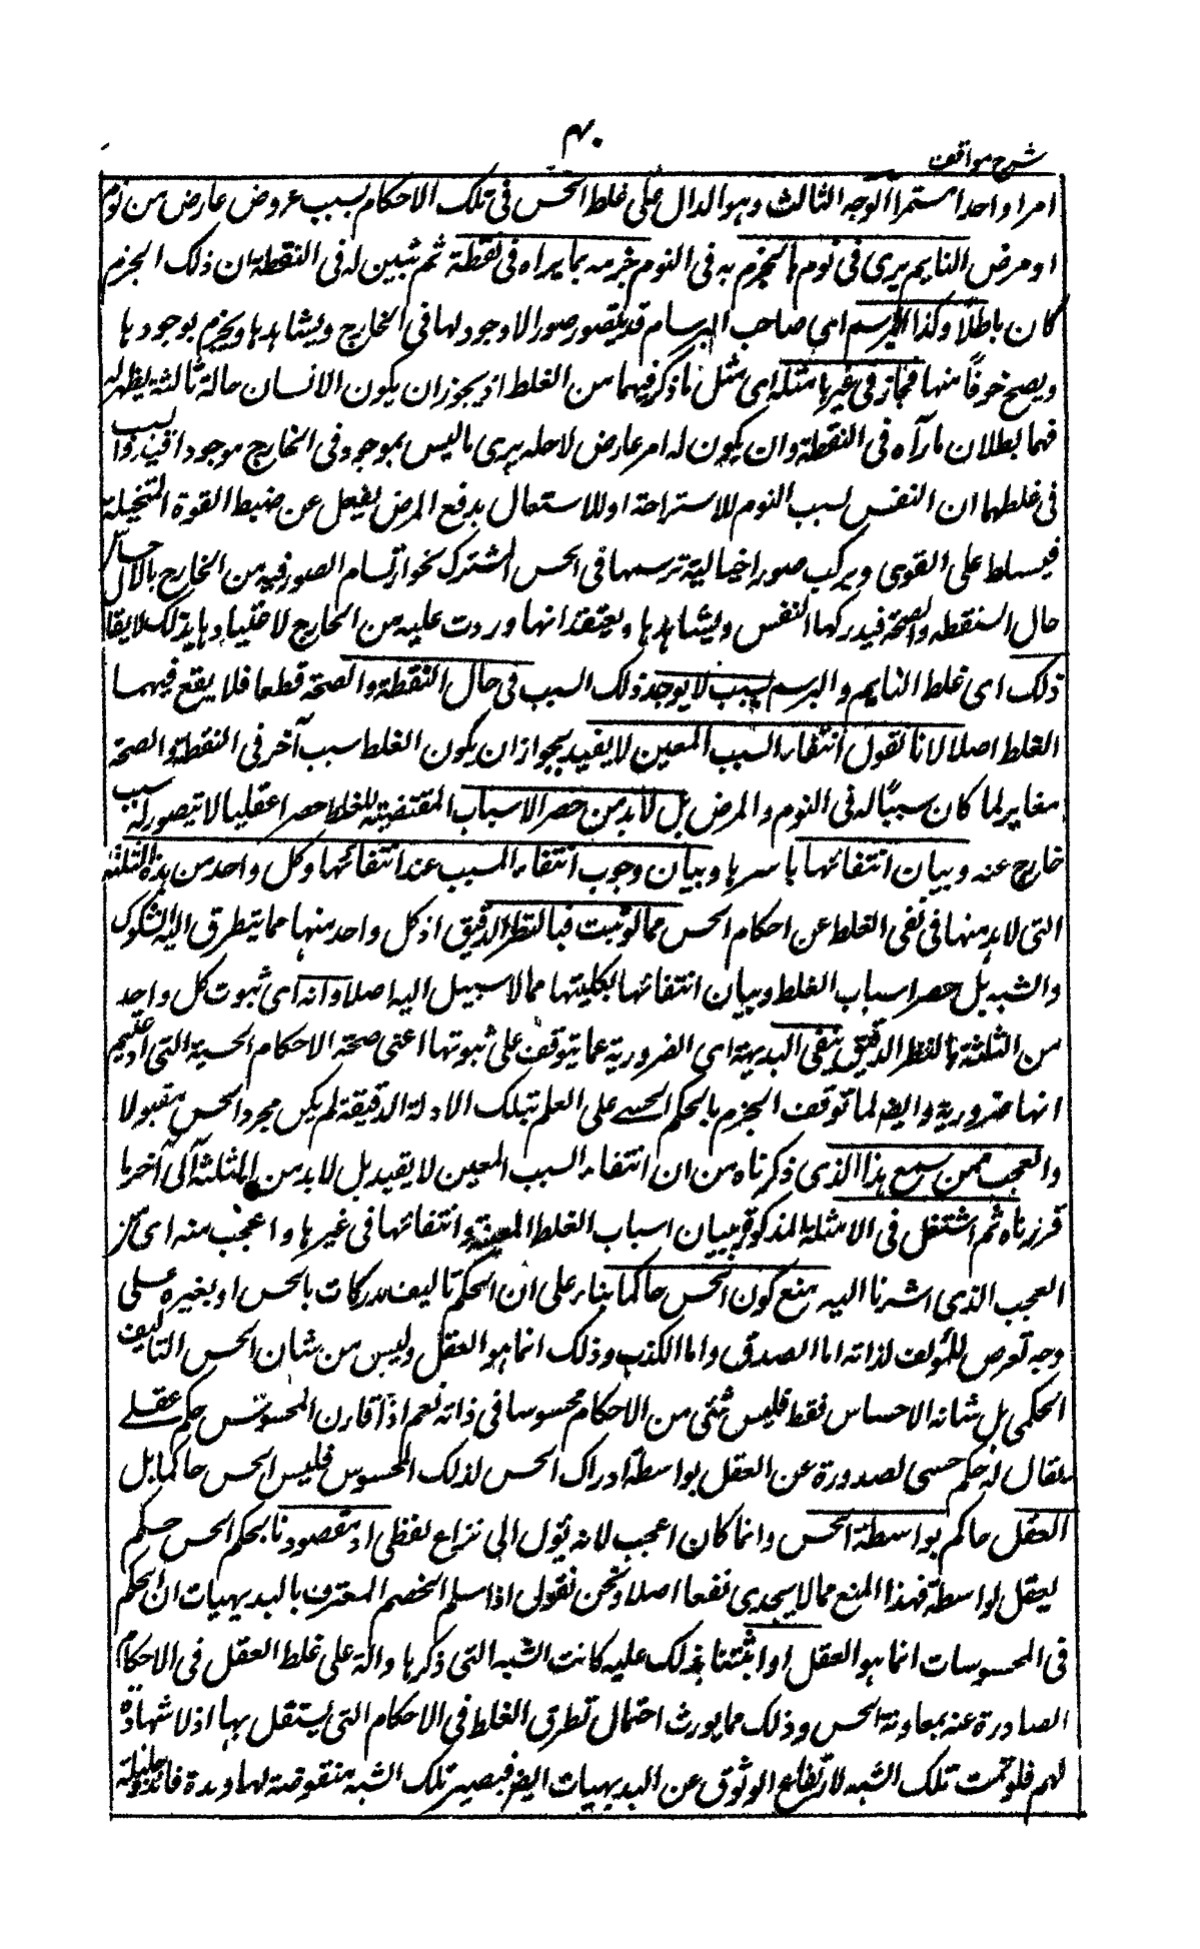 ۴۰
شرح مواقف
امرا واحدا مستمرا الوجه الثالث وهو الدال على غلط الحس فى تلك الاحكام بسبب عروض عارض من نوم
او مرض النايم يرى فى نومه ما يجزم به فى النوم جزمه بما يراه فى نقظة ثم تبين له فى النقظة ان ذلك الجزم
كان باطلا وكذا المبرسم اى صاحب البرسام قد يتصور صورا لا وجود لها فى الخارج ويشاهدها ويجزم بوجودها
ويصح خوفا منها فجاز فى غيرهما مثله اى مثل ما ذكر فيهما من الغلط اذ يجوز ان يكون الانسان حالة ثالثة يظهر له
فيها بطلان ما رآه فى النقظة وان يكون له امر عارض لاجله يرى ما ليس بموجود فى الخارج موجودا فيه والسبب
فى غلطهما ان النفس بسبب النوم للاستراحة او للاستعمال بدفع المرض يغفل عن ضبط القوة المتخيلة
فيسلط على القوى ويركب صورا خيالية ترسمها فى الحس المشترك نحو ارتسام الصور فيه من الخارج بالاحساس
حال النقظه والصحة فيدركها النفس ويشاهدها ويعتقد انها وردت عليه من الخارج لاعتيادها بذلك لا يقال
ذلك اى غلط النايم والمبرسم بسبب لا يوجد ذلك السبب فى حال النقظة والصحة قطعا فلا يقع فيهما
الغلط اصلا لانا نقول انتفاء السبب المعين لا يفيد بجواز ان يكون الغلط سبب آخر فى النقظة والصحة
مغاير لما كان سببا له فى النوم والمرض بل لا بد من حصر الاسباب المقتضية للغلط حصرا عقليا لا تيصور له سبب
خارج عنه وبيان انتفائها باسرها وبيان وجوب انتفاء المسبب عند انتفائها وكل واحد من هذه الثلثة
التى لا بد منها فى نفى الغلط عن احكام الحس مما لو ثبت فبالنظر الدقيق اذ كل واحد منها مما يتطرق اليه الشكوك
والشبه بل حصر اسباب الغلط وبيان انتفائها بكليتها مما لا سبيل اليه اصلا وانه اى ثبوت كل واحد
من الثلثة بالنظر الدقيق ينفى البديهة اى الضرورية عما يتوقف على ثبوتها اعنى صحة الاحكام الحسية التى ادعيتم
انها ضرورية وايضا لما توقف الجزم بالحكم الحسى على العلم بتلك الادلة الدقيقة لم يكن مجرد الحس مقبولا
والعجب ممن سمع هذا الذى ذكرناه من ان انتفاء السبب المعين لا يفيد بل لا بد من الثلثة الى آخر ما
قررناه ثم اشتغل فى الامثلة المذكورة ببيان اسباب الغلط المعينة وانتفائها فى غيرها واعجب منه اى من
العجب الذى اشرنا اليه منع كون الحس حاكما بناء على ان الحكم تاليف مدركات بالحس او بغيره على
وجه تعرض للمؤلف لذاته اما الصدق واما الكذب وذلك انما هو العقل وليس من شان الحس التاليف
الحكمى بل شانه الاحساس فقط فليس شئى من الاحكام محسوسا فى ذاته نعم اذا قارن المحسوس حكم عقلے
يقال له حكم حسى لصدوره عن العقل بواسطة ادراك الحس لذلك المحسوس فليس الحس حاكما بل
العقل حاكم بواسطة الحس وانما كان اعجب لانه يؤل الى نزاع لفظى اذ مقصودنا بحكم الحس حكم
العقل بواسطة فهذا المنع مما لا يجدى نفعا اصلا ونحن نقول اذا سلم الخصم المعترف بالبديهيات ان الحكم
فى المحسوسات انما هو العقل او اثبتنا ذلك عليه كانت الشبه التى ذكرها دالة على غلط العقل فى الاحكام
الصادرة عنه بمعاونة الحس وذلك مما يورث احتمال تطرق الغلط فى الاحكام التى يستقل بها اذ لا شهادة
لهم فلو تمت تلك الشبه لارتفاع الوثوق عن البديهيات ايضا فيصير تلك الشبه منقوضة لها وهذة فائدة جليلة